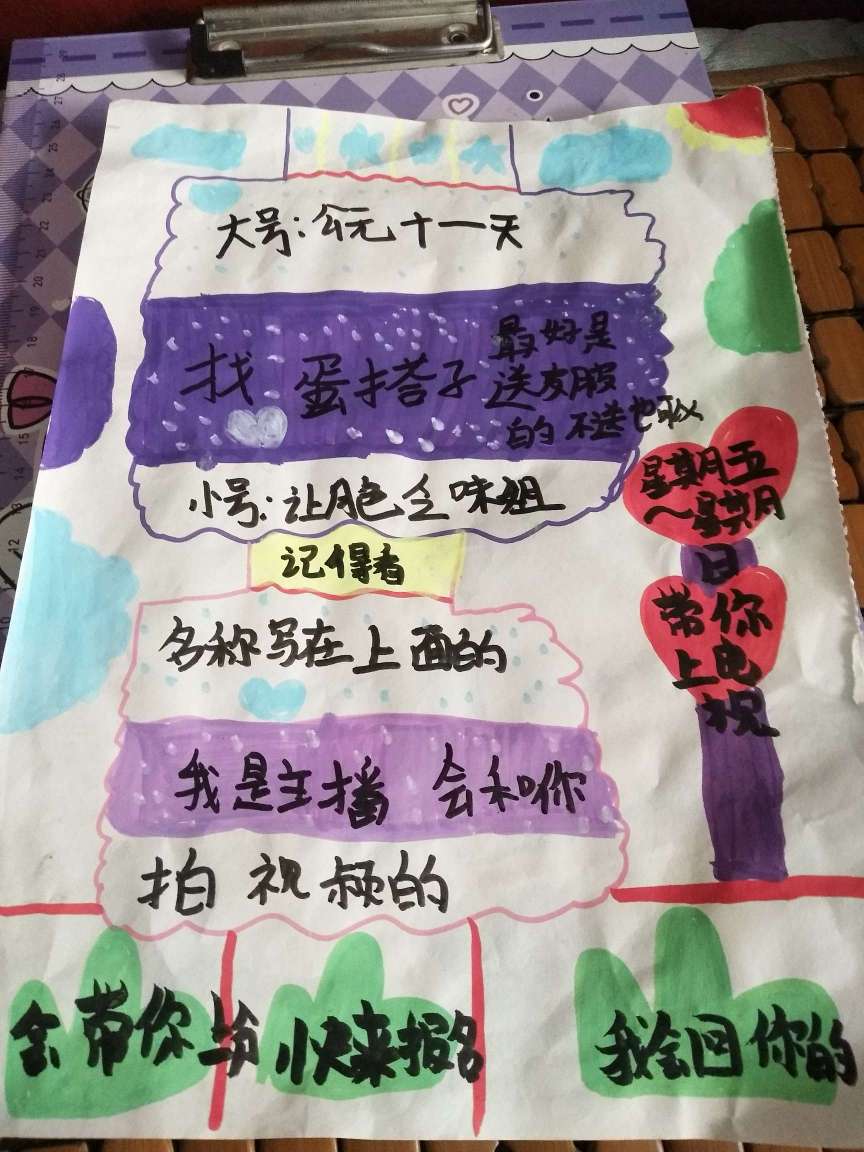 大号:公元十一天
找 蛋搭子
最好是
送友服
的 不送也可以
小号:让月色会味姐
记得看
名称写在上面的
我是主播 会和你
拍视频的
星期五
～星期
日
带你
上电
视
会带你上分
快来报名
我会回你的